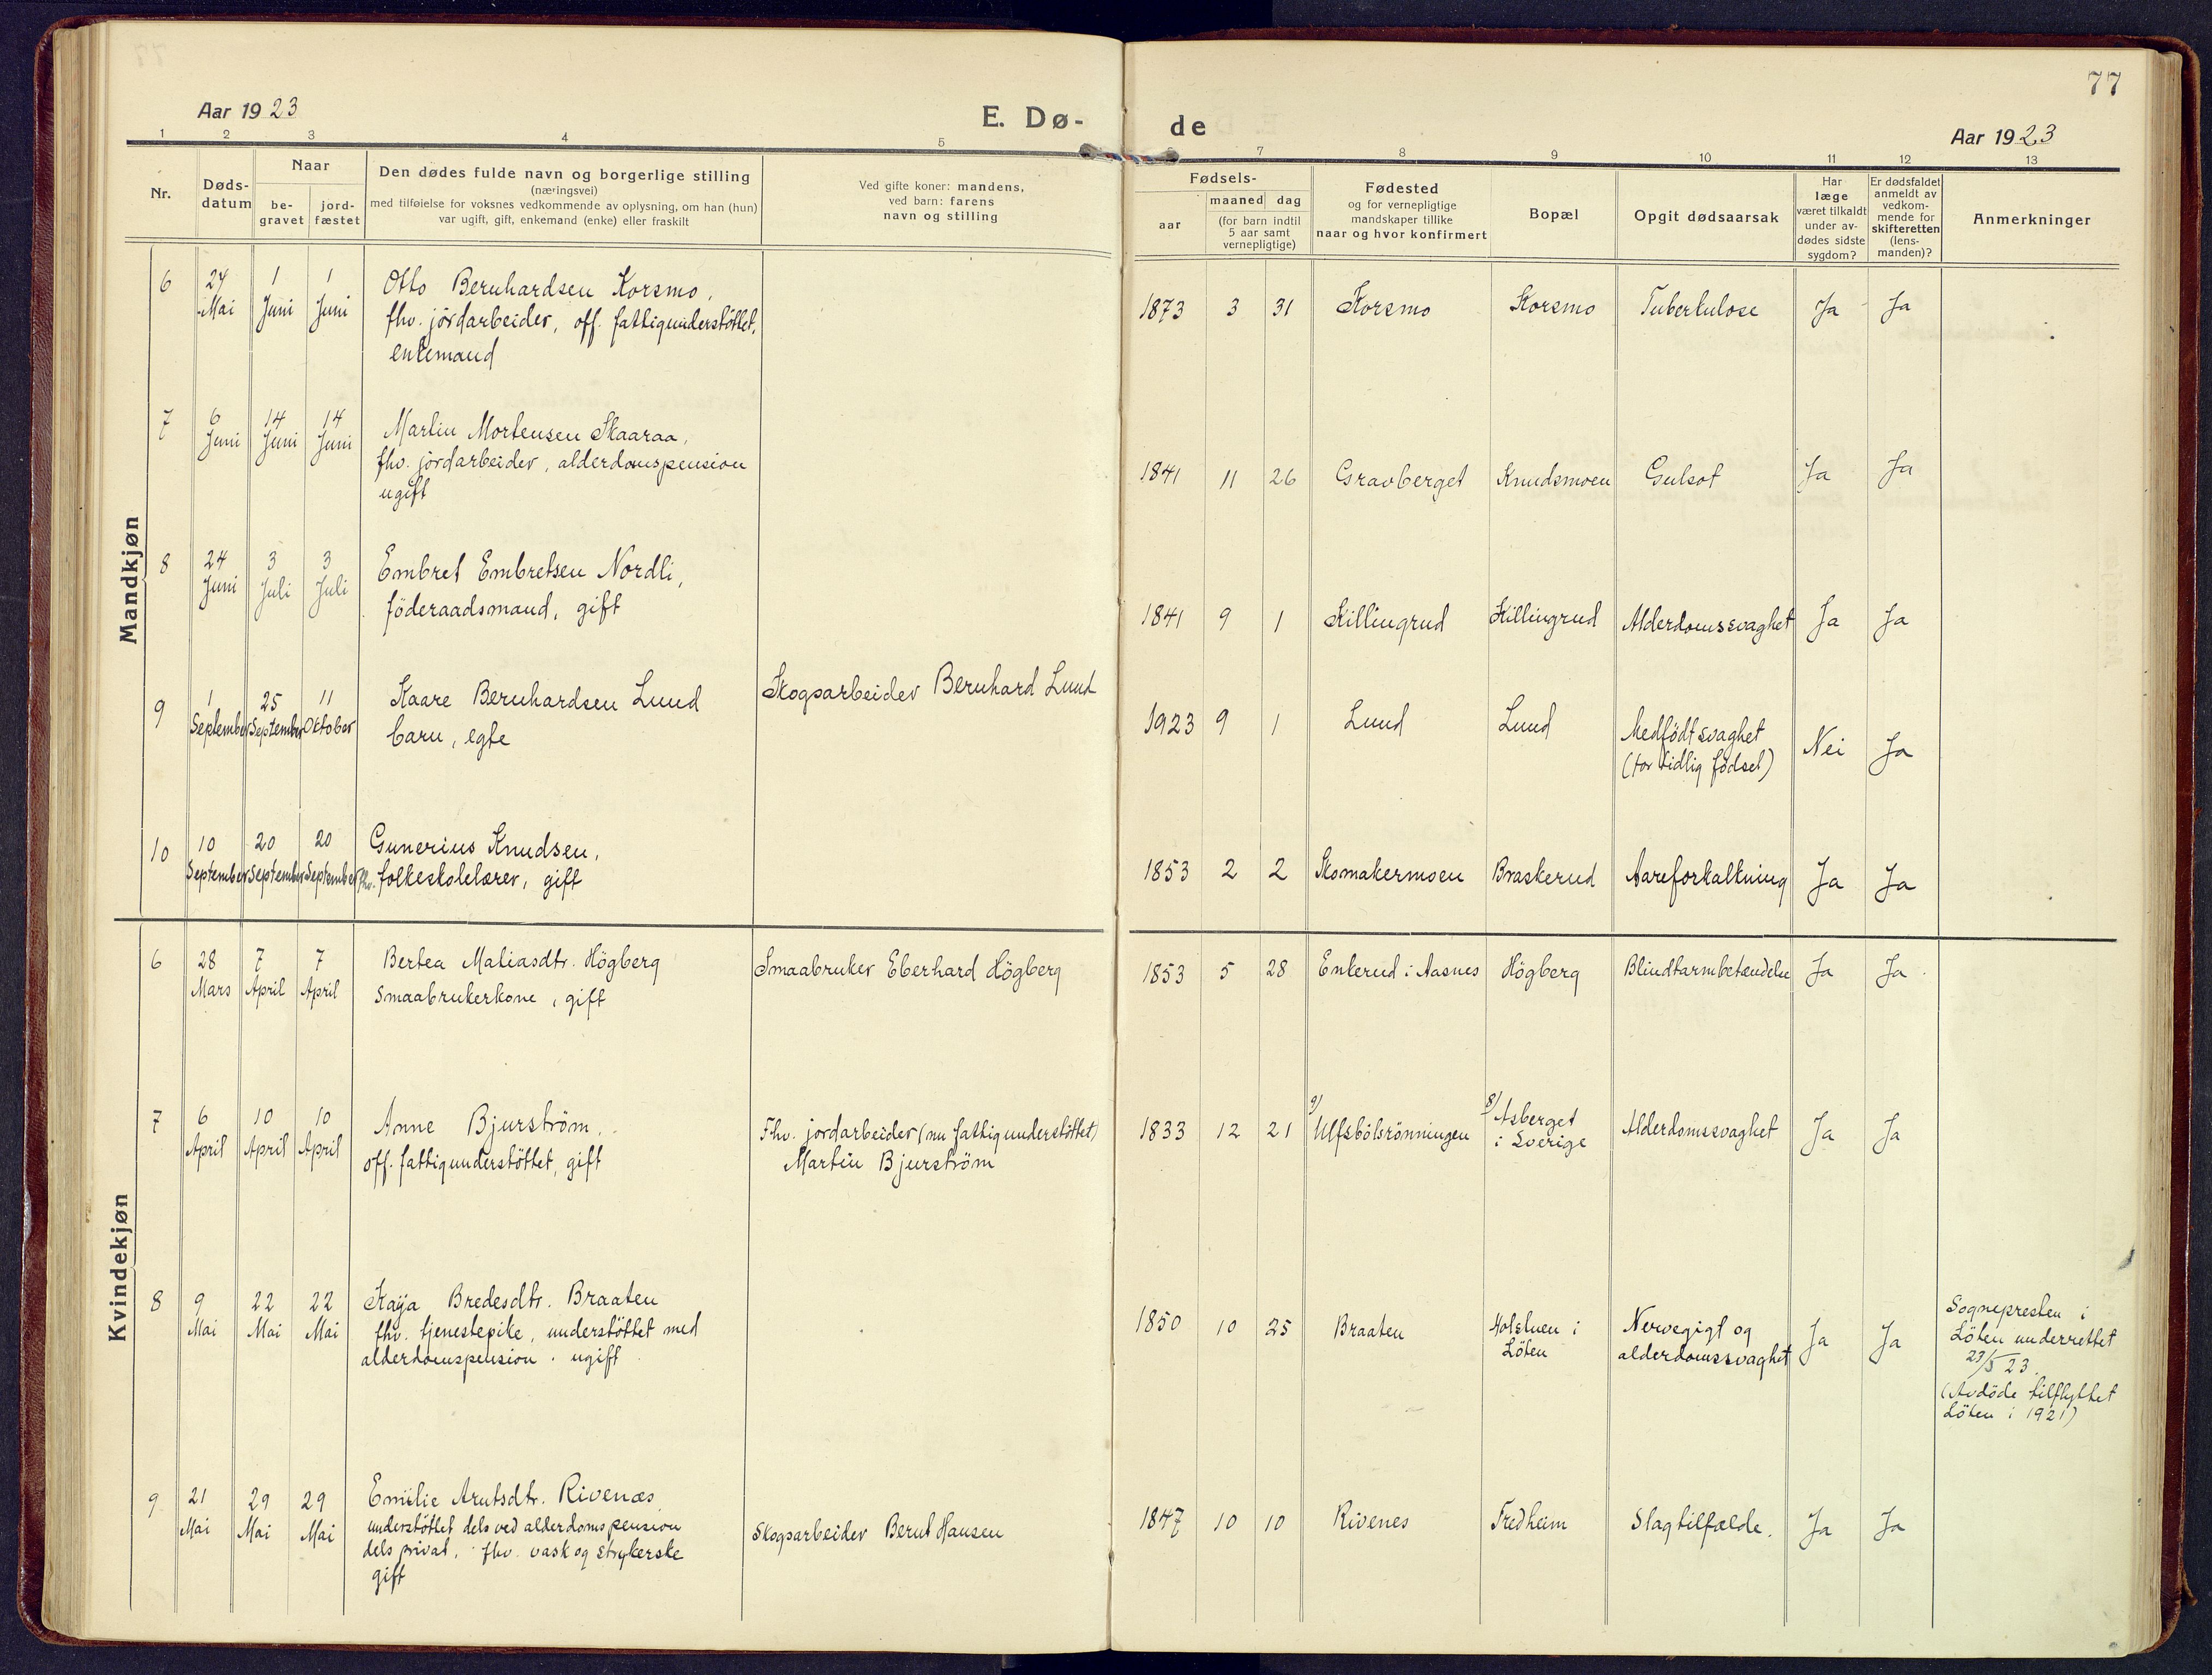 77
Aar 1923
E. Dø-
de
Aar 1923
1 2 3 4 5 7 8 9 10 11 12 13
Nr.
Døds-
datum
Naar
be-
gravet
jord-
fæstet
Den dødes fulde navn og borgerlige stilling
(næringsvei)
med tilføielse for voksnes vedkommende av oplysning, om han (hun)
var ugift, gift, enkemand (enke) eller fraskilt
Ved gifte koner: mandens,
ved barn: farens
navn og stilling
Fødsels-
aar
maaned dag
(for barn indtil
5 aar samt
vernepligtige)
Fødested
og for vernepligtige
mandskaper tillike
naar og hvor konfirmert
Bopæl
Opgit dødsaarsak
Har
læge
været tilkaldt
under av-
dødes sidste
sygdom?
Er dødsfaldet
anmeldt av
vedkom-
mende for
skifteretten
(lens-
manden)?
Anmerkninger
Mandkjøn
6
24
Mai
1
Juni
1
Juni
Otto Bernhardsen Korsmo,
fhv. jordarbeider, off. fattigunderstöttet,
enkemand
1873 3 31 Korsmo Korsmo Tuberkulose Ja Ja
7
6
Juni
14
Juni
14
Juni
Martin Mortensen Skaaraa,
fhv. jordarbeider, alderdomspension
ugift
1841 11 26 Gravberget Knudsmoen Gulsot Ja Ja
8
24
Juni
3
Juli
3
Juli
Embret Embretsen Nordli,
föderaadsmand, gift
1841 9 1 Killingrud Killingrud Alderdomssvaghet Ja Ja
9
1
September
25
September
11
Oktober
Kaare Bernhardsen Lund
barn, egte
Skogsarbeider Bernhard Lund
1923 9 1 Lund Lund
Medfödt svaghet
(for tidlig födsel)
Nei Ja
10
10
September
20
September
20
September
Gunerius Knudsen,
fhv. folkeskolelærer, gift
1853 2 2 Skomakermoen Braskerud Aareforkalkning Ja Ja
Kvindekjøn
6
28
Mars
7
April
7
April
Bertea Matiasdtr. Högberg
Smaabrukerkone, gift
Smaabruker Eberhard Högberg
1853 5 28 Enkerud i Aasnes Högberg Blindtarmbetændelse Ja Ja
7
6
April
10
April
10
April
Anne Bjurström,
off. fattigunderstöttet, gift
Fhv. jordarbeider (nu fattigunderstöttet)
Martin Bjurström
1833 12 21
9)
Ulfsbölsrönningen
8)
Asberget
i Sverige
Alderdomssvaghet Ja Ja
8
9
Mai
22
Mai
22
Mai
Kaja Bredesdtr. Braaten
fhv. tjenestepike, understöttet med
alderdomspension. ugift
1850 10 25 Braaten
i
Löten
Nervegigt og
alderdomssvaghet
Ja Ja
Sognepresten i
Löten underrettet
23/5 23.
(Avdöde tilflyttet
Löten i 1921)
9
21
Mai
29
Mai
29
Mai
Emilie Arntsdtr. Rivenæs
understöttet dels ved alderdomspension
dels privat, fhv. vask og strykerske
gift
Skogsarbeider Bernt Hansen
1847 10 10 Rivenes Fredheim Slagtilfælde. Ja Ja